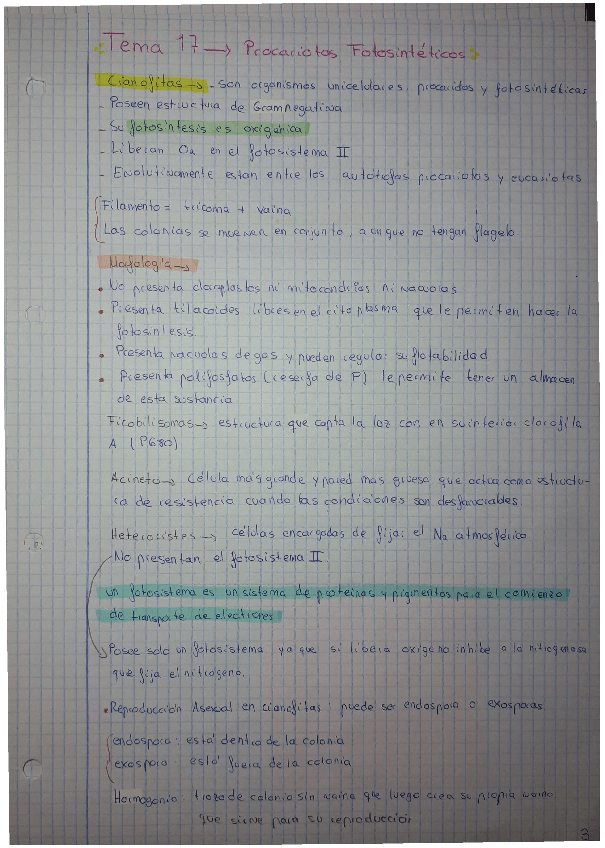 Tema 17 → Procariotos Fotosintéticos
Cianofitas → - son organismos unicelulares, procariotas y fotosintéticas
- Poseen estructura de Gramnegativa
- Su fotosíntesis es oxigénica
- Liberan O2 en el fotosistema II
- Evolutivamente estan entre los autótrofos procariotas y eucariotas
Filamento = tricoma + vaina
Las colonias se mueven en conjunto, aunque no tengan flagelo
Morfología →
• No presenta cloroplastos ni mitocondrias ni vacuolas
• Presenta tilacoides libres en el citoplasma que le permiten hacer la
fotosíntesis.
• Presenta vacuolas de gas y pueden regular su flotabilidad
• Presenta polifosfatos (reserva de P) le permite tener un almacen
de esta sustancia
Ficobilisomas → estructura que capta la luz con en su interior clorofila
A (P680)
Acineto → Célula más grande y pared mas gruesa que actua como estructu-
ra de resistencia cuando las condiciones son desfavorables
Heterocistes → células encargadas de fijar el N2 atmosférico
No presentan el fotosistema II
un fotosistema es un sistema de proteinas y pigmentos para el comienzo
de transporte de electrones
Posee solo un fotosistema ya que si libera oxigeno inhibe a la nitrogenasa
que fija el nitrógeno.
• Reproducción Asexual en cianofitas: puede ser endospora o exosporas
endospora: está dentro de la colonia
exospora: está fuera de la colonia
Hormogonio: trozo de colonia sin vaina que luego crea su propia vaina
que sirve para su reproducción
3